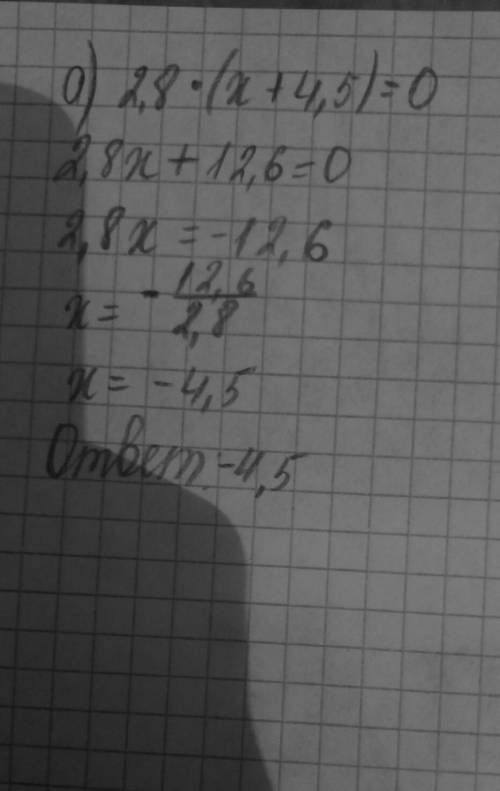 а) 2,8·(x+4,5)=0
2,8x+12,6=0
2,8x=-12,6
x= -12,6/2,8
x= -4,5
Ответ: -4,5